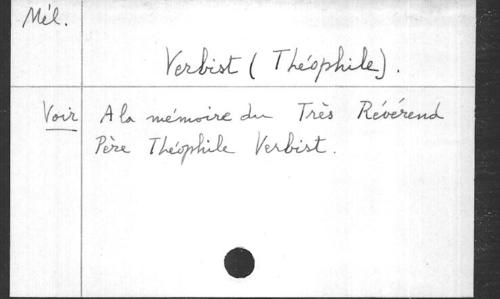 Mél.
Verbist (Théophile).
Voir A la mémoire du Très Révérend
Père Théophile Verbist.